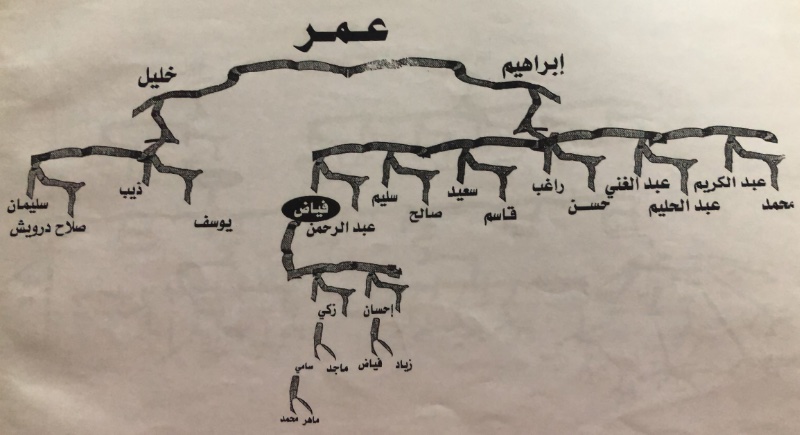 عمر
إبراهيم
خليل
محمد
عبد الكريم
عبد الحليم
عبد الغني
حسن
راغب
قاسم
سعيد
صالح
سليم
عبد الرحمن
فياض
يوسف
ذيب
سليمان
صلاح درويش
إحسان
زكي
زياد
فياض
ماجد
سامي
ماهر
محمد